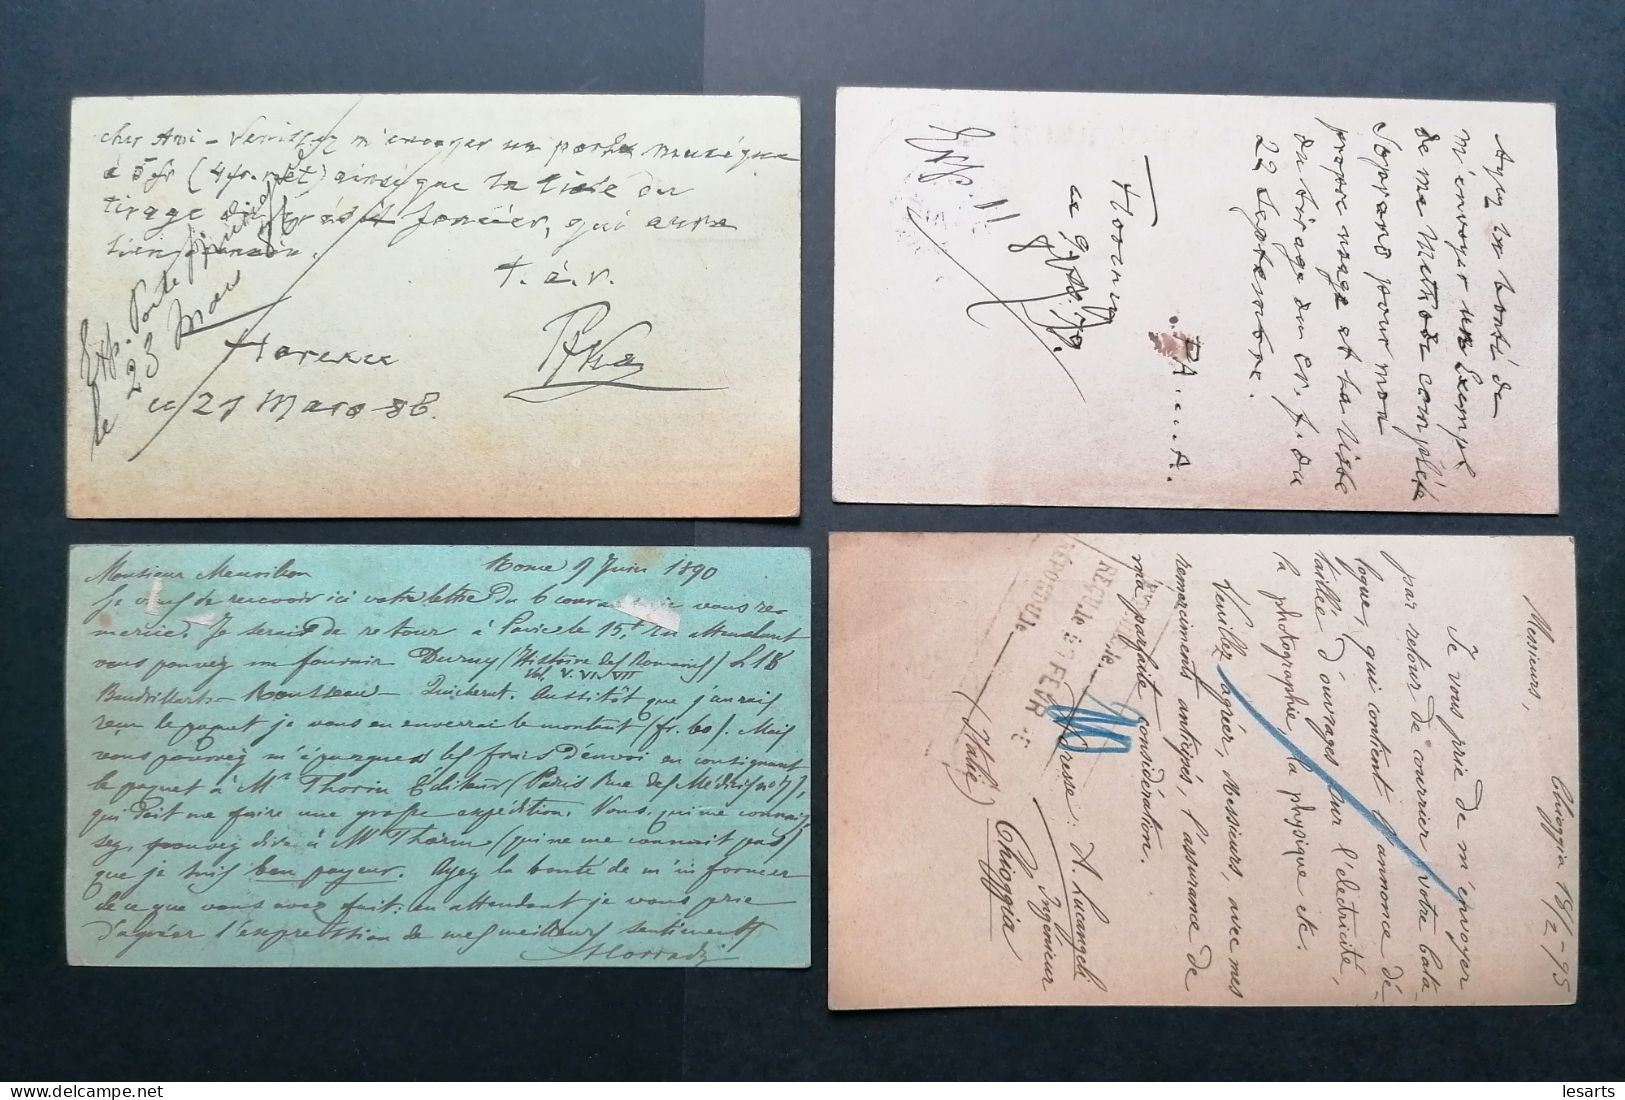 cher Ami – Veuillez m'envoyer un porte musique
à 5 fr (4 fr. net) ainsi que la liste du
tirage du crédit foncier, qui aura
lieu
t. à. v.
Florence
le 21 Mars 86.
Exp. Porte musique
le 23 Mars
Ayez la bonté de
m'envoyer un Exempl
de ma Méthode complète
Soprano pour mon
propre usage et la liste
du tirage du cr. f. du
22 Septembre.
A.
Florence
Exp. 11
Monsieur Meuvillon
Rome 9 Juin 1890
Je viens de recevoir ici votre lettre du 6 courant je vous re-
mercie. Je serai de retour à Pavie le 15, en attendant
vous pouvez me fournir Duruy (Histoire des Romains) L 18
Vol. V. VI. VII
Baudrillart – Rousseau – Quicherat. Aussitôt que j'aurai
reçu le paquet je vous en enverrai le montant (fr. 60). Mais
vous pouvez m'épargner les frais d'envoi en consignant
le paquet à Mr Thorin Éditeur (Paris Rue de Médicis no 7),
qui doit me faire une grosse expédition. Vous, qui me connais
sez, pouvez dire à Mr Thorin (qui ne me connait pas)
que je suis bon payeur. Ayez la bonté de m'informer
de ce que vous avez fait: en attendant je vous prie
d'agréer l'expression de mes meilleurs sentiments
Chioggia 19/2-95
Messieurs,
Je vous prie de m'envoyer
par retour de courrier votre Cata
logue, qui contient l'annonce dé
taillée d'ouvrages sur l'électricité,
la photographie, la physique etc.
Veuillez agréer, Messieurs, avec mes
remerciments anticipés, l'assurance de
ma parfaite considération.
Adresse: A. Lucangeli
Ingénieur
Chioggia
(Italie)
REÇU le 2 FEVR
RÉPONDU le
lesarts